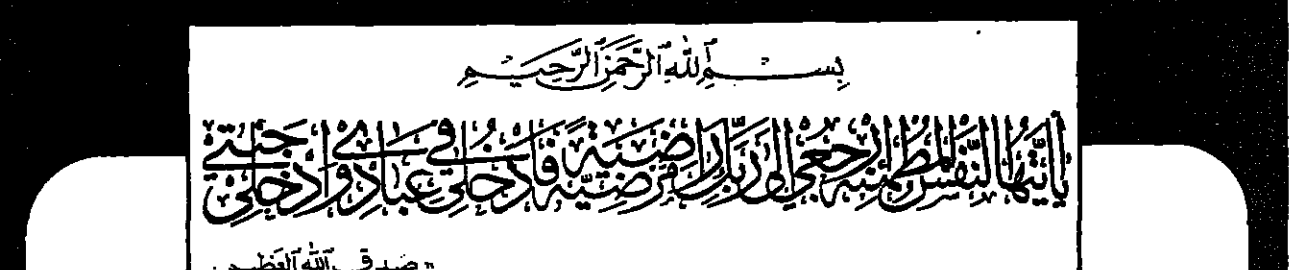 بِسْمِ اللَّهِ الرَّحْمَٰنِ الرَّحِيمِ
يَا أَيَّتُهَا النَّفْسُ الْمُطْمَئِنَّةُ ارْجِعِي إِلَىٰ رَبِّكِ رَاضِيَةً مَرْضِيَّةً فَادْخُلِي فِي عِبَادِي وَادْخُلِي جَنَّتِي
« صَدَقَ اللَّهُ الْعَظِيمُ »